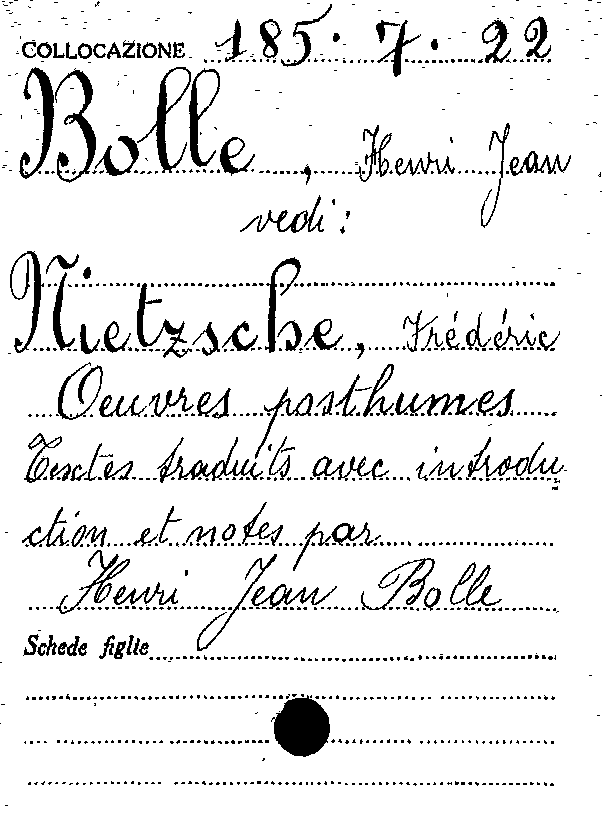 COLLOCAZIONE 185. 7. 22
Bolle, Henri Jean
vedi:
Nietzsche, Frédéric
Oeuvres posthumes
Textes traduits avec introdu-
ction et notes par
Henri Jean Bolle
Schede figlie